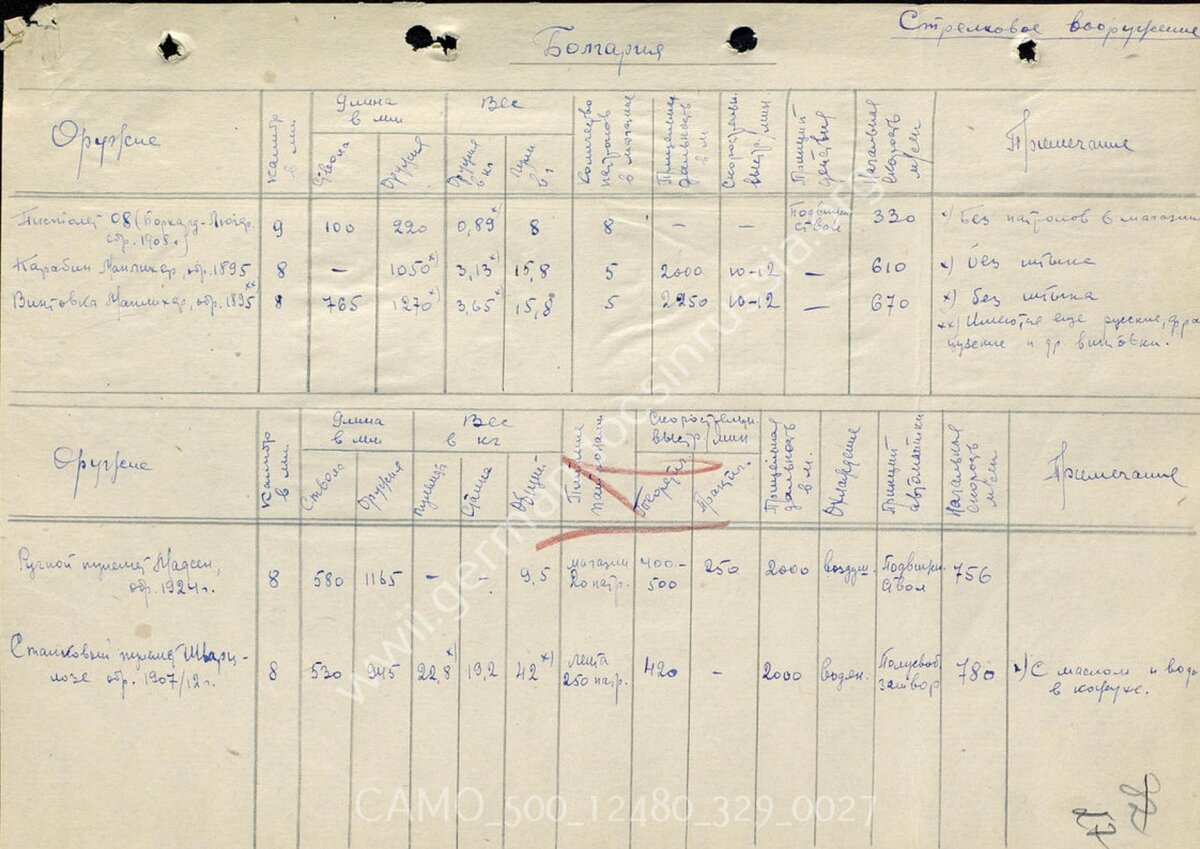 Стрелковое вооружение
Болгария
Оружие
Калибр в мм
Длина в мм
Ствола
Оружия
Вес
Оружия в кг
Пули в г
Количество патронов в магазине
Прицельная дальность в м
Скорострельн. выстр/мин
Принцип действия
Начальная скорость м/сек
Примечание
Пистолет 08 (Борхард-Люгер обр. 1908г.) 9 100 220 0,89 х) 8 8 — — Подвижн. ствол 330 х) Без патронов в магазине
Карабин Манлихер, обр. 1895 8 — 1050 х) 3,13 х) 15,8 5 2000 10-12 — 610 х) Без штыка
Винтовка Манлихер, обр. 1895 хх) 8 765 1270 х) 3,65 х) 15,8 5 2250 10-12 — 670 х) Без штыка
хх) Имеются еще русские, фран
цузские и др. винтовки.
Оружие
Калибр в мм
Длина в мм
Ствола
Оружия
Вес в кг
Пулемета
Станка
Общий
Питание патронами
Скорострельн. выстр/мин
Теоретич.
Практич.
Прицельная дальность в м.
Охлаждение
Принцип автоматики
Начальная скорость м/сек
Примечание
Ручной пулемет Мадсен, обр. 1924г. 8 580 1165 — — 9,5 магазин 20 патр. 400-500 250 2000 воздуш. Подвижн. ствол 756
Станковый пулемет Шварц-
лозе обр. 1907/12г. 8 530 945 22,8 х) 19,2 42 х) лента 250 патр. 420 — 2000 водян. Полусвоб. затвор 780 х) С маслом и водой
в кожухе.
www.germandocsinrussia.org
CAMO_500_12480_329_0027